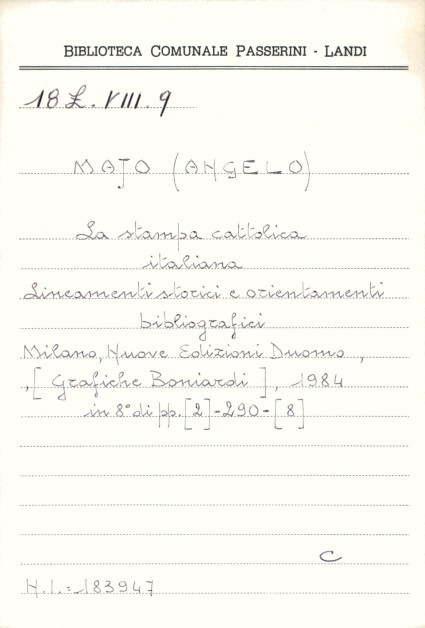 BIBLIOTECA COMUNALE PASSERINI - LANDI
18 Z. VIII. 9
MAJO (ANGELO)
La stampa cattolica
italiana
Lineamenti storici e orientamenti
bibliografici
Milano, Nuove Edizioni Duomo,
,[Grafiche Boniardi], 1984
in 8° di pp. [2]-290-[8]
C
N.I.=183947